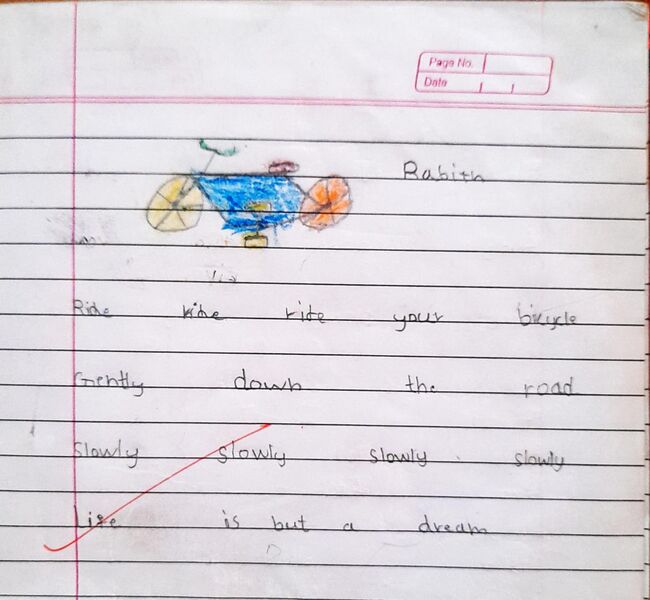 Page No.
Date
Rabith
Ride ride ride your bicycle
Gently down the road
Slowly slowly slowly slowly
Life is but a dream